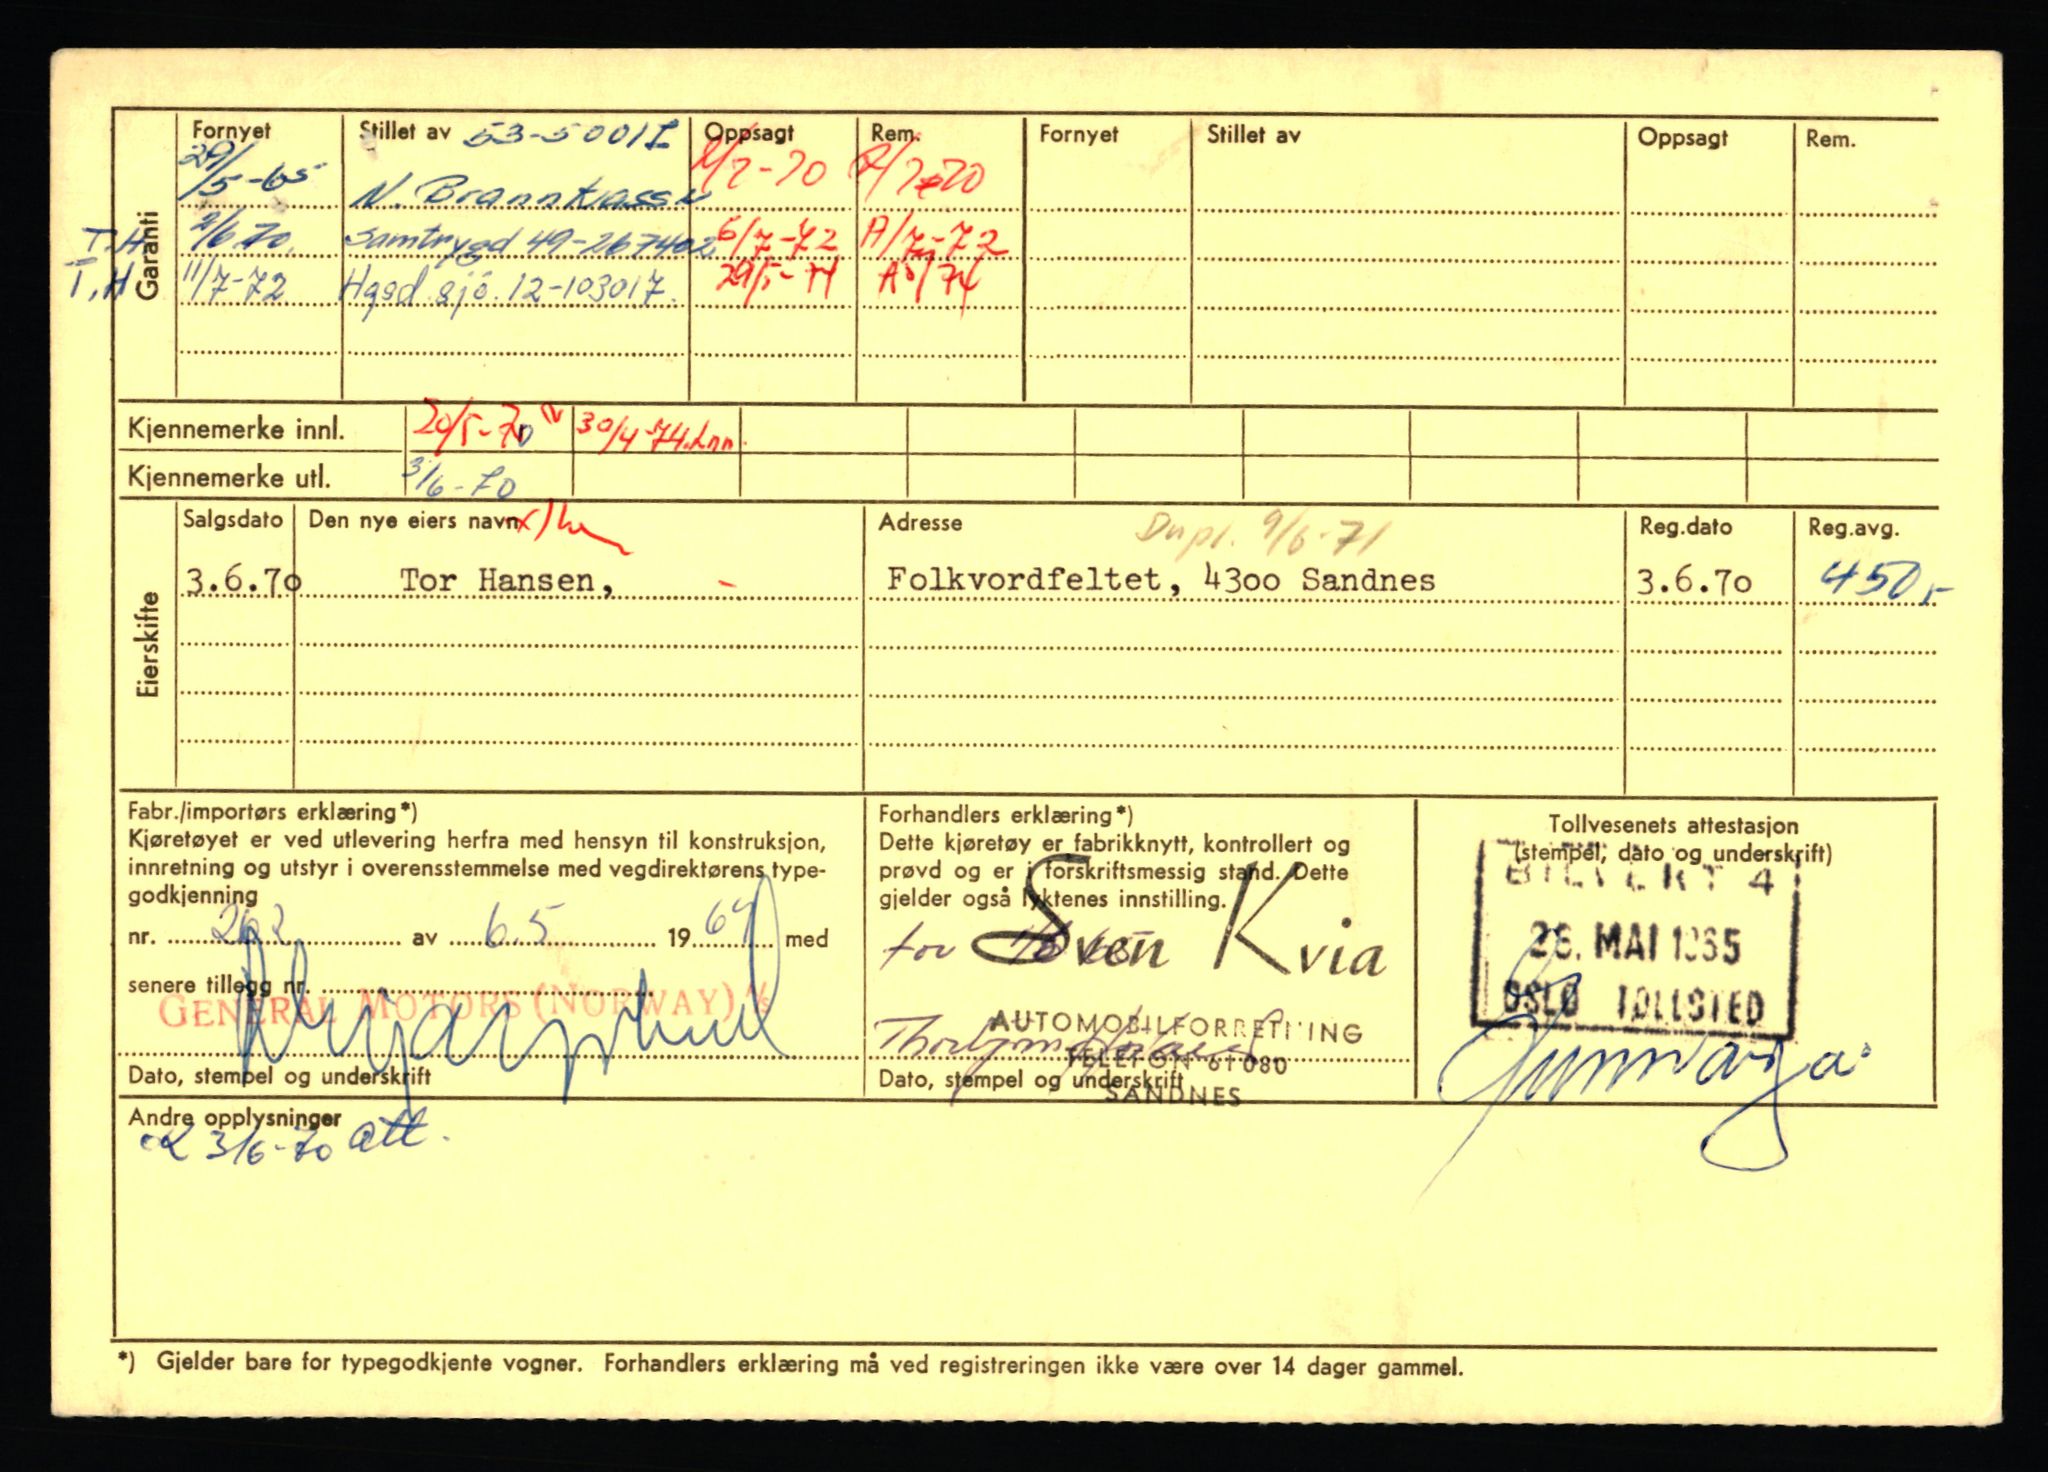 Fornyet Stillet av 53-50017 Oppsagt Rem. Fornyet Stillet av Oppsagt Rem.
Garanti
29/5-65 N. Brannkasse 1/7-70 A/7-70
T.H 2/6 70. Samtrygd 49-267402 6/7-72 A/7-72
T.H 11/7-72 Hgsd. sjö. 12-103017. 29/5-74
Kjennemerke innl. 20/5-70 30/4-74. Inn.
Kjennemerke utl. 3/6-70
Eierskifte
Salgsdato Den nye eiers navn Adresse Dupl. 9/6-71 Reg.dato Reg.avg.
3.6.70 Tor Hansen, Folkvordfeltet, 4300 Sandnes 3.6.70 450,-
Fabr./importørs erklæring*)
Kjøretøyet er ved utlevering herfra med hensyn til konstruksjon,
innretning og utstyr i overensstemmelse med vegdirektørens type-
godkjenning
nr. 262 av 6.5 1964 med
senere tillegg nr.
GENERAL MOTORS (NORWAY) A/S
Dato, stempel og underskrift
Forhandlers erklæring*)
Dette kjøretøy er fabrikknytt, kontrollert og
prøvd og er i forskriftsmessig stand. Dette
gjelder også lyktenes innstilling.
for Sven Kvia
AUTOMOBILFORRETNING
TELEFON 61080
Dato, stempel og underskrift
SANDNES
Tollvesenets attestasjon
(stempel, dato og underskrift)
BILVERT 4
26. MAI 1965
OSLO TOLLSTED
Andre opplysninger
3/6-70 att.
*) Gjelder bare for typegodkjente vogner. Forhandlers erklæring må ved registreringen ikke være over 14 dager gammel.